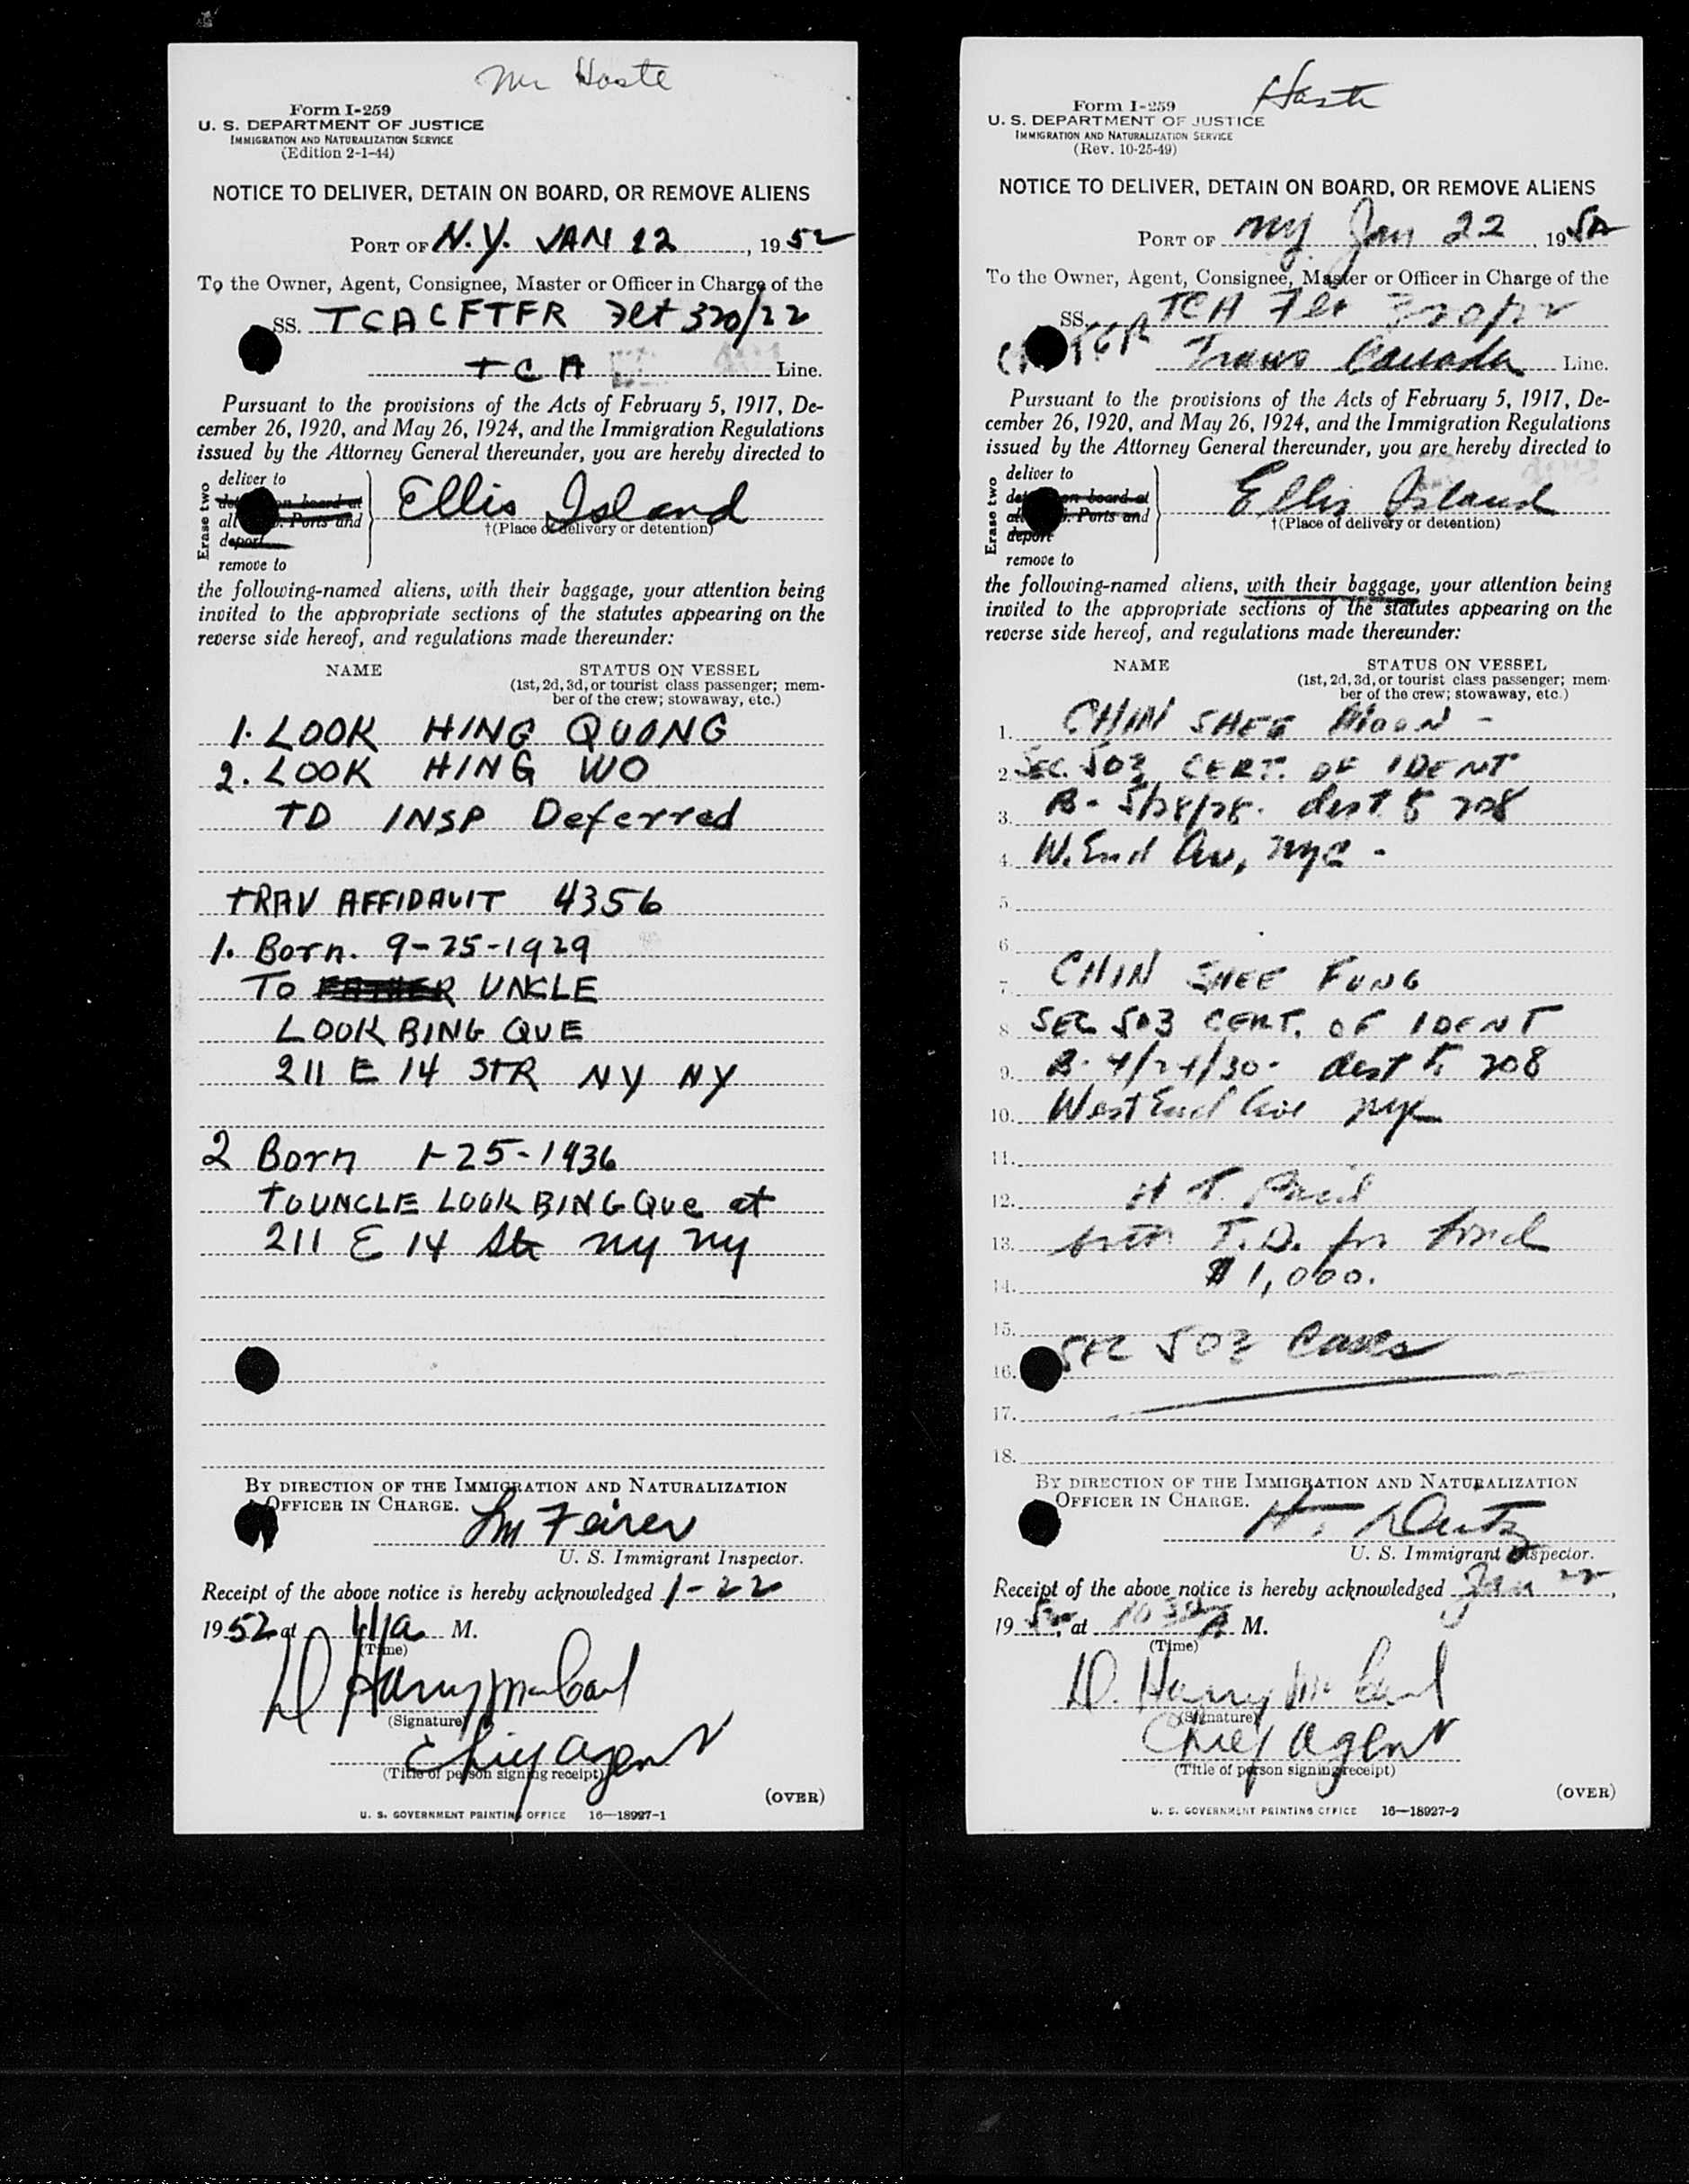 Mr Haste
Form I-259
U. S. DEPARTMENT OF JUSTICE
IMMIGRATION AND NATURALIZATION SERVICE
(Edition 2-1-44)
NOTICE TO DELIVER, DETAIN ON BOARD, OR REMOVE ALIENS
PORT OF N.Y. JAN 22, 1952
To the Owner, Agent, Consignee, Master or Officer in Charge of the
SS. TCA CFTFR Flt 320/22
TCA Line.
Pursuant to the provisions of the Acts of February 5, 1917, De-
cember 26, 1920, and May 26, 1924, and the Immigration Regulations
issued by the Attorney General thereunder, you are hereby directed to
Erase two
deliver to
on board at
all Ports and
deport
remove to
Ellis Island
†(Place of delivery or detention)
the following-named aliens, with their baggage, your attention being
invited to the appropriate sections of the statutes appearing on the
reverse side hereof, and regulations made thereunder:
NAME STATUS ON VESSEL
(1st, 2d, 3d, or tourist class passenger; mem-
ber of the crew; stowaway, etc.)
1. LOOK HING QUONG
2. LOOK HING WO
TD INSP Deferred
TRAV AFFIDAVIT 4356
1. Born. 9-25-1929
TO FATHER UNCLE
LOOK BING QUE
211 E 14 STR NY NY
2 Born 1-25-1936
TO UNCLE LOOK BING Que at
211 E 14 Str NY NY
BY DIRECTION OF THE IMMIGRATION AND NATURALIZATION
OFFICER IN CHARGE.
U. S. Immigrant Inspector.
Receipt of the above notice is hereby acknowledged 1-22
1952 at 11a M.
(Time)
D Harry
(Signature)
Chief Agent
(Title of person signing receipt)
(OVER)
U. S. GOVERNMENT PRINTING OFFICE 16—18927-1
Haste
Form I-259
U. S. DEPARTMENT OF JUSTICE
IMMIGRATION AND NATURALIZATION SERVICE
(Rev. 10-25-49)
NOTICE TO DELIVER, DETAIN ON BOARD, OR REMOVE ALIENS
PORT OF NY Jan 22, 1952
To the Owner, Agent, Consignee, Master or Officer in Charge of the
SS. TCA Flt 320/22
Trans Canada Line.
Pursuant to the provisions of the Acts of February 5, 1917, De-
cember 26, 1920, and May 26, 1924, and the Immigration Regulations
issued by the Attorney General thereunder, you are hereby directed to
Erase two
deliver to
on board at
Ports and
deport
remove to
Ellis Island
†(Place of delivery or detention)
the following-named aliens, with their baggage, your attention being
invited to the appropriate sections of the statutes appearing on the
reverse side hereof, and regulations made thereunder:
NAME STATUS ON VESSEL
(1st, 2d, 3d, or tourist class passenger; mem-
ber of the crew; stowaway, etc.)
1. CHIN SHEE MOON -
2. SEC. 503 CERT. OF IDENT
3. B- 5/28/28. dest to 208
4. W. End Av, NYC -
5.
6.
7. CHIN SHEE FUNG
8. SEC 503 CERT. OF IDENT
9. B- 4/24/30- dest to 208
10. West End Ave NYC
11.
12. H T. Paid
13. both T.D. for bond
14. $1,000.
15.
16. SEC 503 Cases
17.
18.
BY DIRECTION OF THE IMMIGRATION AND NATURALIZATION
OFFICER IN CHARGE.
U. S. Immigrant Inspector.
Receipt of the above notice is hereby acknowledged Jan 22,
1952, at 10 30 A M.
(Time)
D. Harry
(Signature)
Chief Agent
(Title of person signing receipt)
(OVER)
U. S. GOVERNMENT PRINTING OFFICE 16—18927-2